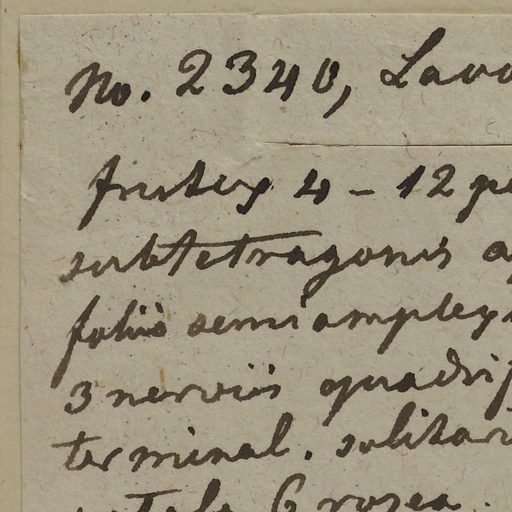 No. 2340, Lavo
frutex 4 - 12 pe
subtetragonis a
foliis semiamplex
3 nerviis quadrif
terminal. solitari
petala 6 rosea.